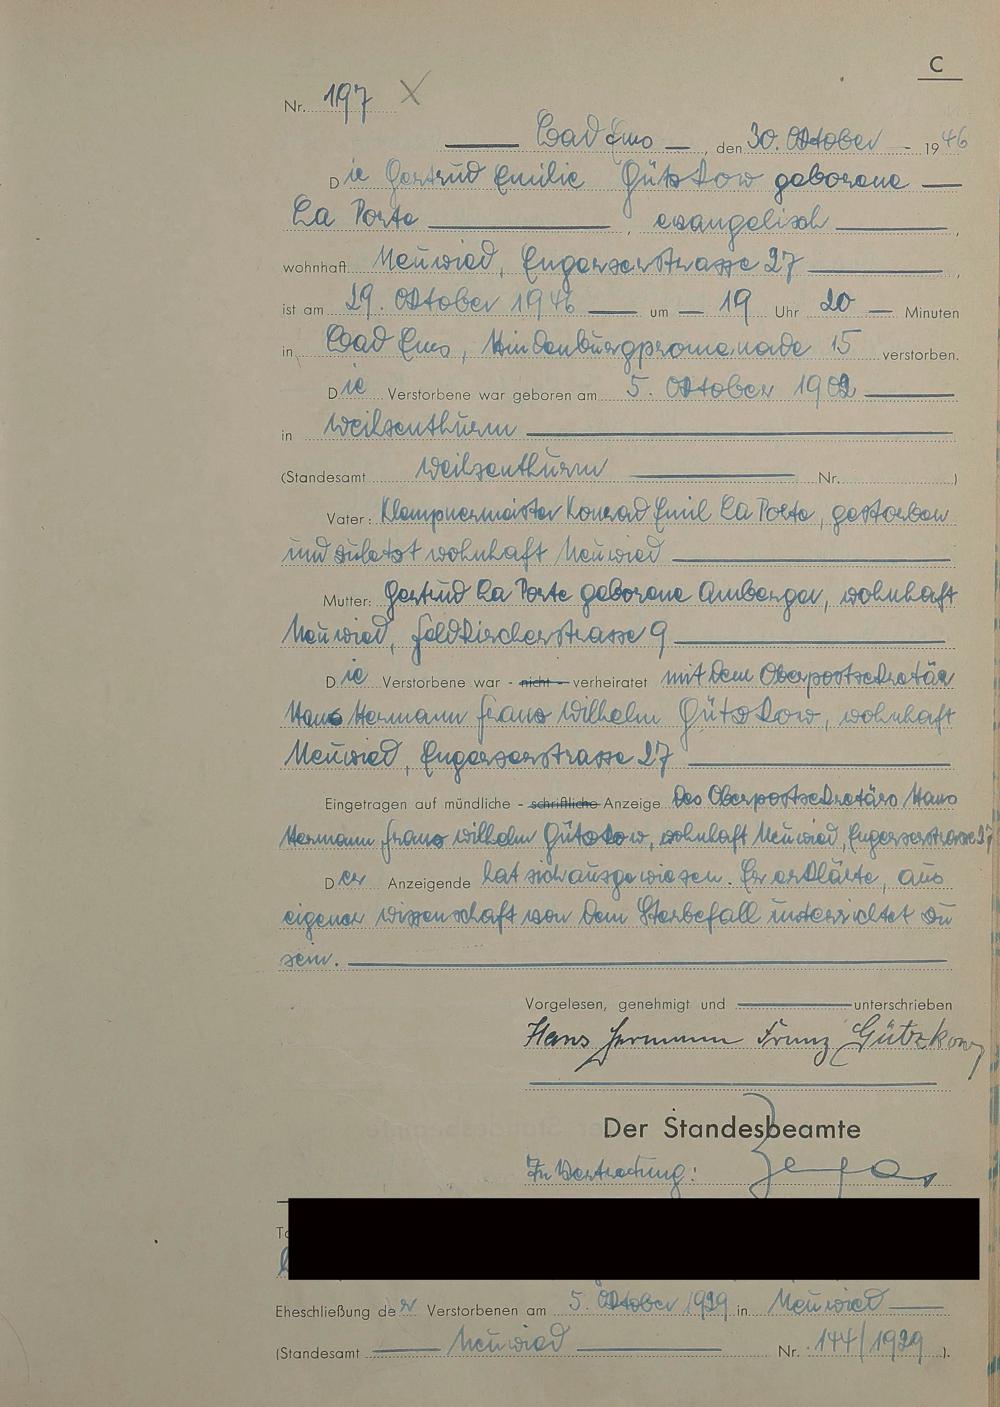 C
Nr. 197 X
Bad Ems, den 30. Oktober 1946
Die Gertrud Emilie Gützkow geborene
La Porte, evangelisch,
wohnhaft Neuwied, Engerserstrasse 27,
ist am 29. Oktober 1946 um 19 Uhr 20 Minuten
in Bad Ems, Hindenburgpromenade 15 verstorben.
Die Verstorbene war geboren am 5. Oktober 1902
in Weißenthurm
(Standesamt Weißenthurm Nr. )
Vater: Klempnermeister Konrad Emil La Porte, gestorben
und zuletzt wohnhaft Neuwied
Mutter: Gertrud La Porte geborene Amberger, wohnhaft
Neuwied, Feldkircherstrasse 9
Die Verstorbene war - nicht - verheiratet mit dem Oberpostsekretär
Hans Hermann Franz Wilhelm Gützkow, wohnhaft
Neuwied, Engerserstrasse 27
Eingetragen auf mündliche - schriftliche Anzeige des Oberpostsekretärs Hans
Hermann Franz Wilhelm Gützkow, wohnhaft Neuwied, Engerserstrasse 27
Der Anzeigende hat sich ausgewiesen. Er erklärte, aus
eigener Wissenschaft von dem Sterbefall unterrichtet zu
sein.
Vorgelesen, genehmigt und unterschrieben
Hans Hermann Franz Gützkow
Der Standesbeamte
In Vertretung:
Eheschließung der Verstorbenen am 5. Oktober 1929 in Neuwied
(Standesamt Neuwied Nr. 144/1929).